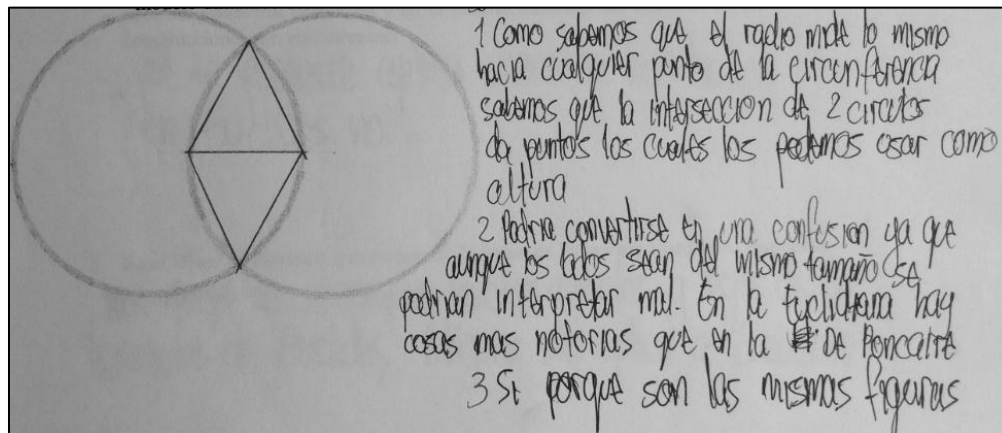 1 Como sabemos que el radio mide lo mismo
hacia cualquier punto de la circunferencia
sabemos que la interseccion de 2 circulos
da puntos los cuales los podemos usar como
altura
2 Podria convertirse en una confusion ya que
aunque los lados sean del mismo tamaño se
podrian interpretar mal. En la Euclidiana hay
cosas mas notorias que en la De Poncaire
3 Si porque son las mismas figuras